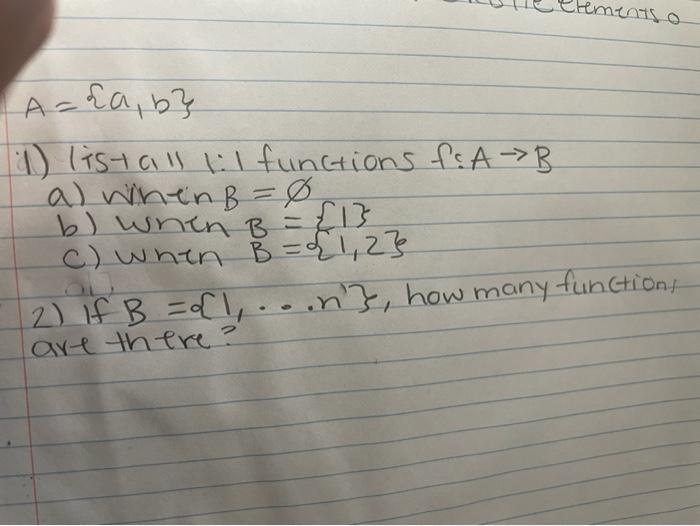 elements o
A = {a, b}
1) list all 1:1 functions f: A → B
a) when B = ∅
b) when B = {1}
c) when B = {1, 2}
2) if B = {1, ... n}, how many functions
are there?